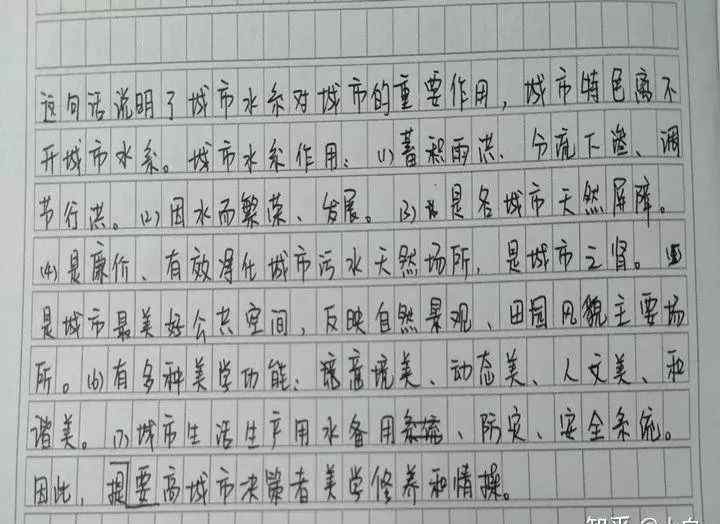 这句话说明了城市水系对城市的重要作用，城市特色离不
开城市水系。城市水系作用：(1)蓄积雨洪、分流下渗、调
节行洪。(2)因水而繁荣、发展。(3)是各城市天然屏障。
(4)是廉价、有效净化城市污水天然场所，是城市之肾。(5)
是城市最美好公共空间，反映自然景观、田园风貌主要场
所。(6)有多种美学功能：意境美、动态美、人文美、和
谐美。(7)城市生活生产用水备用、防灾、安全系统。
因此，要提高城市决策者美学修养和情操。
知乎 @小白